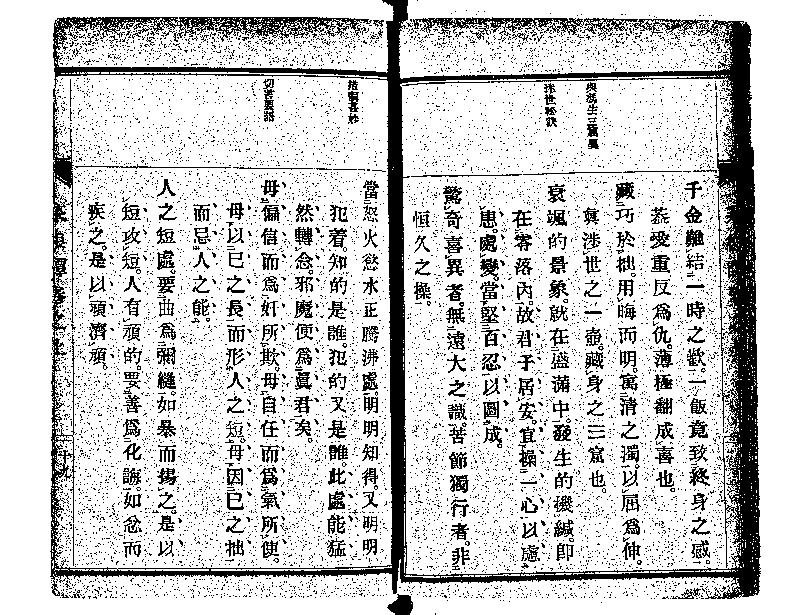 千金難結一時之歡。一飯竟致終身之感。
葢愛重反爲仇。薄極翻成喜也。
藏巧於拙。用晦而明。寓清之濁。以屈爲伸。
眞涉世之一壺。藏身之三窟也。
涉世祕訣
衰颯的景象。就在盛滿中。發生的機緘。即
在零落內。故君子居安。宜操一心以慮
患。處變。當堅百忍以圖成。
驚奇喜異者。無遠大之識。苦節獨行者。非
恒久之操。
當怒火慾水正騰沸處。明明知得。又明明
犯着。知的是誰。犯的又是誰。此處能猛
然轉念。邪魔便爲眞君矣。
毋偏信而爲奸所欺。毋自任而爲氣所使。
毋以己之長而形人之短。毋因己之拙
而忌人之能。
人之短處。要曲爲彌縫。如暴而揚之。是以
短攻短。人有頑的。要善爲化誨。如忿而
疾之。是以頑濟頑。